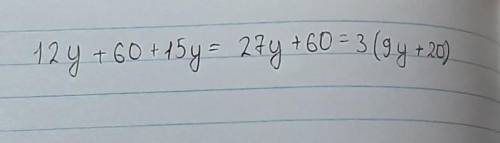 12y + 60 + 15y = 27y + 60 = 3 (9y + 20)